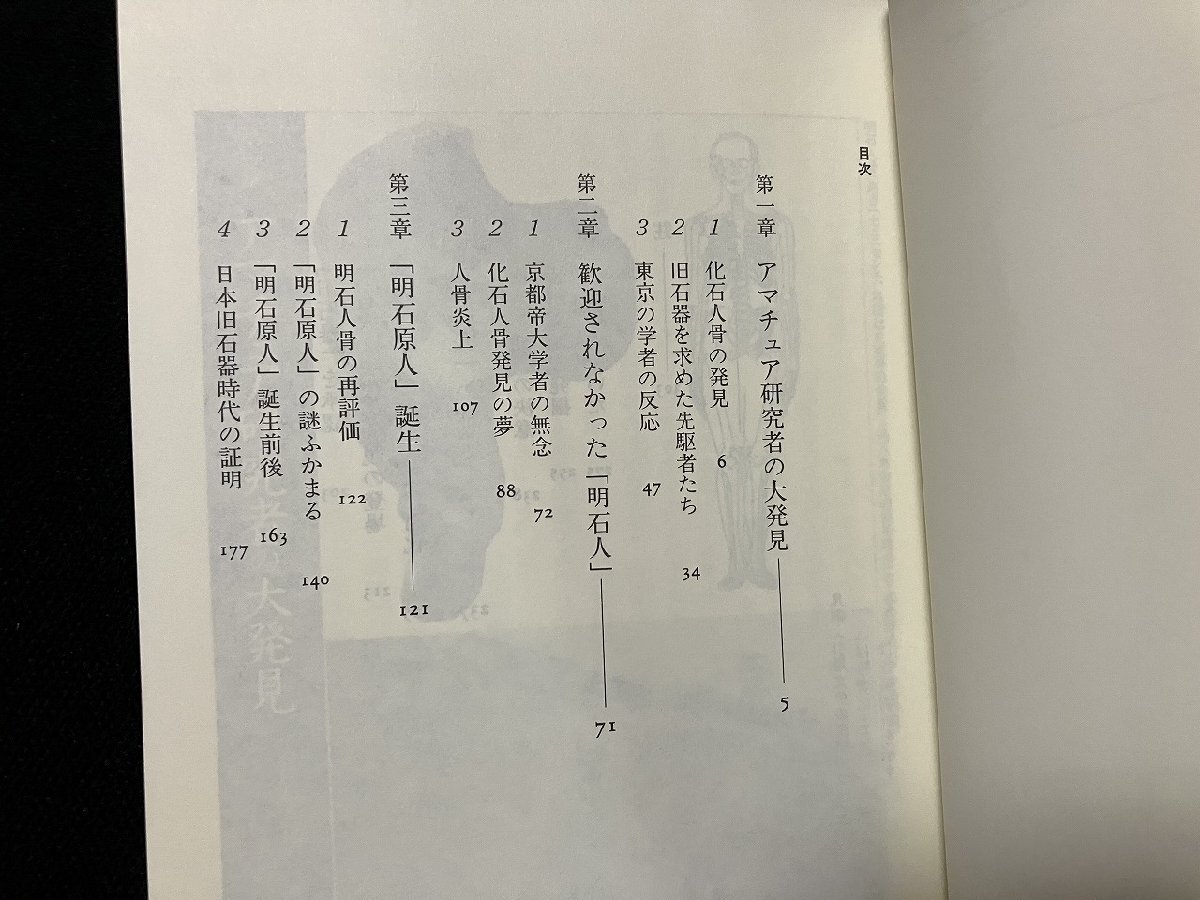 目次
第一章 アマチュア研究者の大発見 5
1 化石人骨の発見 6
2 旧石器を求めた先駆者たち 34
3 東京の学者の反応 47
第二章 歓迎されなかった「明石人」 71
1 京都帝大学者の無念 72
2 化石人骨発見の夢 88
3 人骨炎上 107
第三章 「明石原人」誕生 121
1 明石人骨の再評価 122
2 「明石原人」の謎ふかまる 140
3 「明石原人」誕生前後 163
4 日本旧石器時代の証明 177
大発見